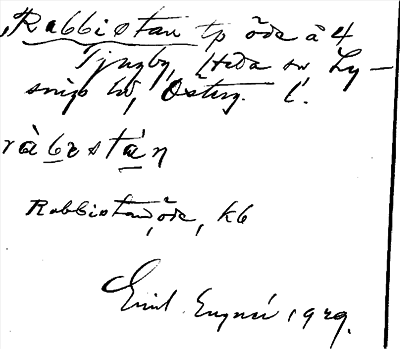 Rabbistan tp öde å 4
Tjuzby, Heda sn, Ly-
sings hd, Österg. l.
ràbɛstán
Rabbistan, öde, kb
Emil 1929.